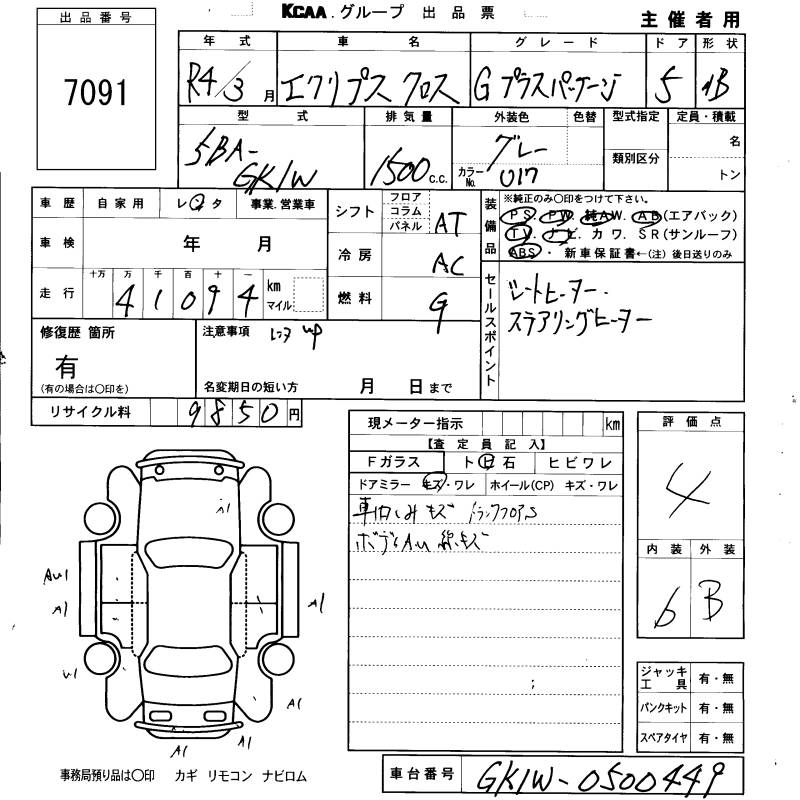 KCAA.グループ 出品票
主催者用
出品番号
7091
年式 車名 グレード ドア 形状
R4/3月 エクリプス クロス Gプラスパッケージ 5
型式 排気量 外装色 色替 型式指定 定員・積載
5BA-GK1W 1500c.c. グレー カラーNo. 017 類別区分 名 トン
車歴 自家用 レンタ 事業.営業車
シフト フロア コラム パネル AT
装備品 ※純正のみ〇印をつけて下さい。
PS. PW. 純AW. AB(エアバック)
TV. ナビ. カワ. SR(サンルーフ)
ABS ・ 新車保証書←(注)後日送りのみ
車検 年 月
冷房 AC
走行 十万 万 千 百 十 一
41094 km マイル
燃料 G
セールスポイント
シートヒーター.
ステアリングヒーター
修復歴 箇所
有
(有の場合は〇印を)
注意事項 レンタup
名変期日の短い方 月 日まで
リサイクル料 9850円
現メーター指示 km
【査定員記入】
Fガラス ト ビ 石 ヒビワレ
ドアミラー キズ・ワレ ホイール(CP) キズ・ワレ
車内しみ キズ トランクフロアS
ボディAu 線キズ
評価点
4
内装 外装
6 B
A1
AU1
A1
A1
A1
A1
A1
ジャッキ工具 有・無
パンクキット 有・無
スペアタイヤ 有・無
事務局預り品は〇印 カギ リモコン ナビロム
車台番号 GK1W-0500449